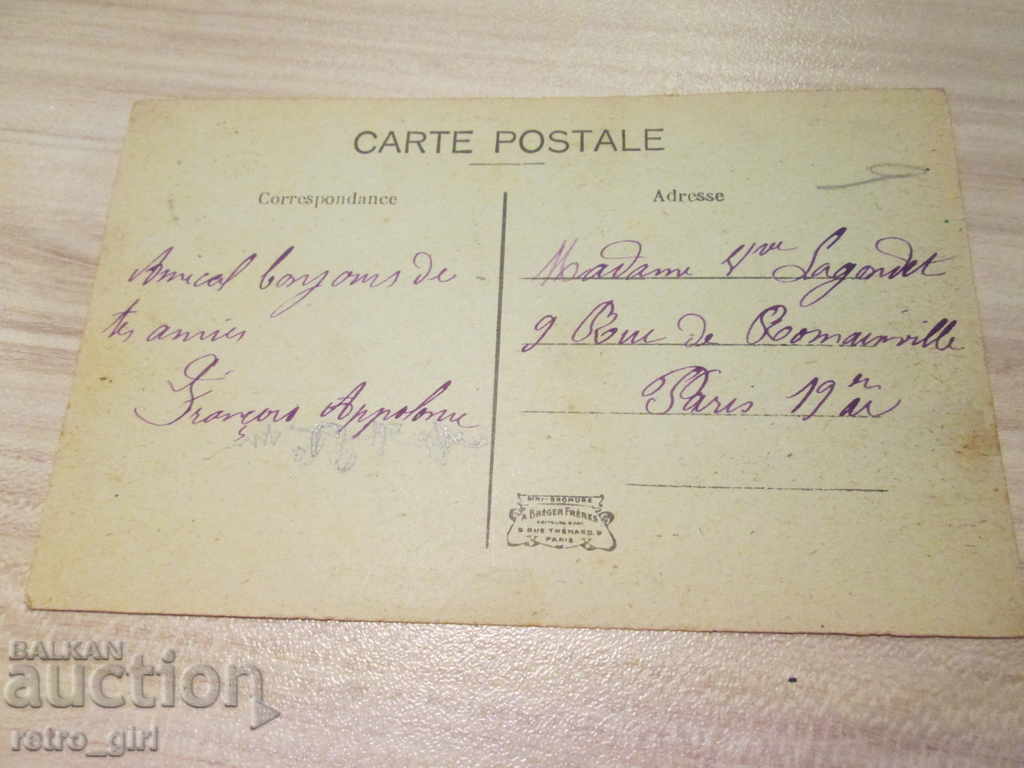 CARTE POSTALE
Correspondance
Adresse
Amical bonjours de
tes amies
François Appolonie
Madame Vve Lagondet
9 Rue de Romainville
Paris 19 em
ar
BROMURE
A. BREGER FRÈRES
9 RUE THÉNARD. 9
PARIS
BALKAN
auction
retro_girl